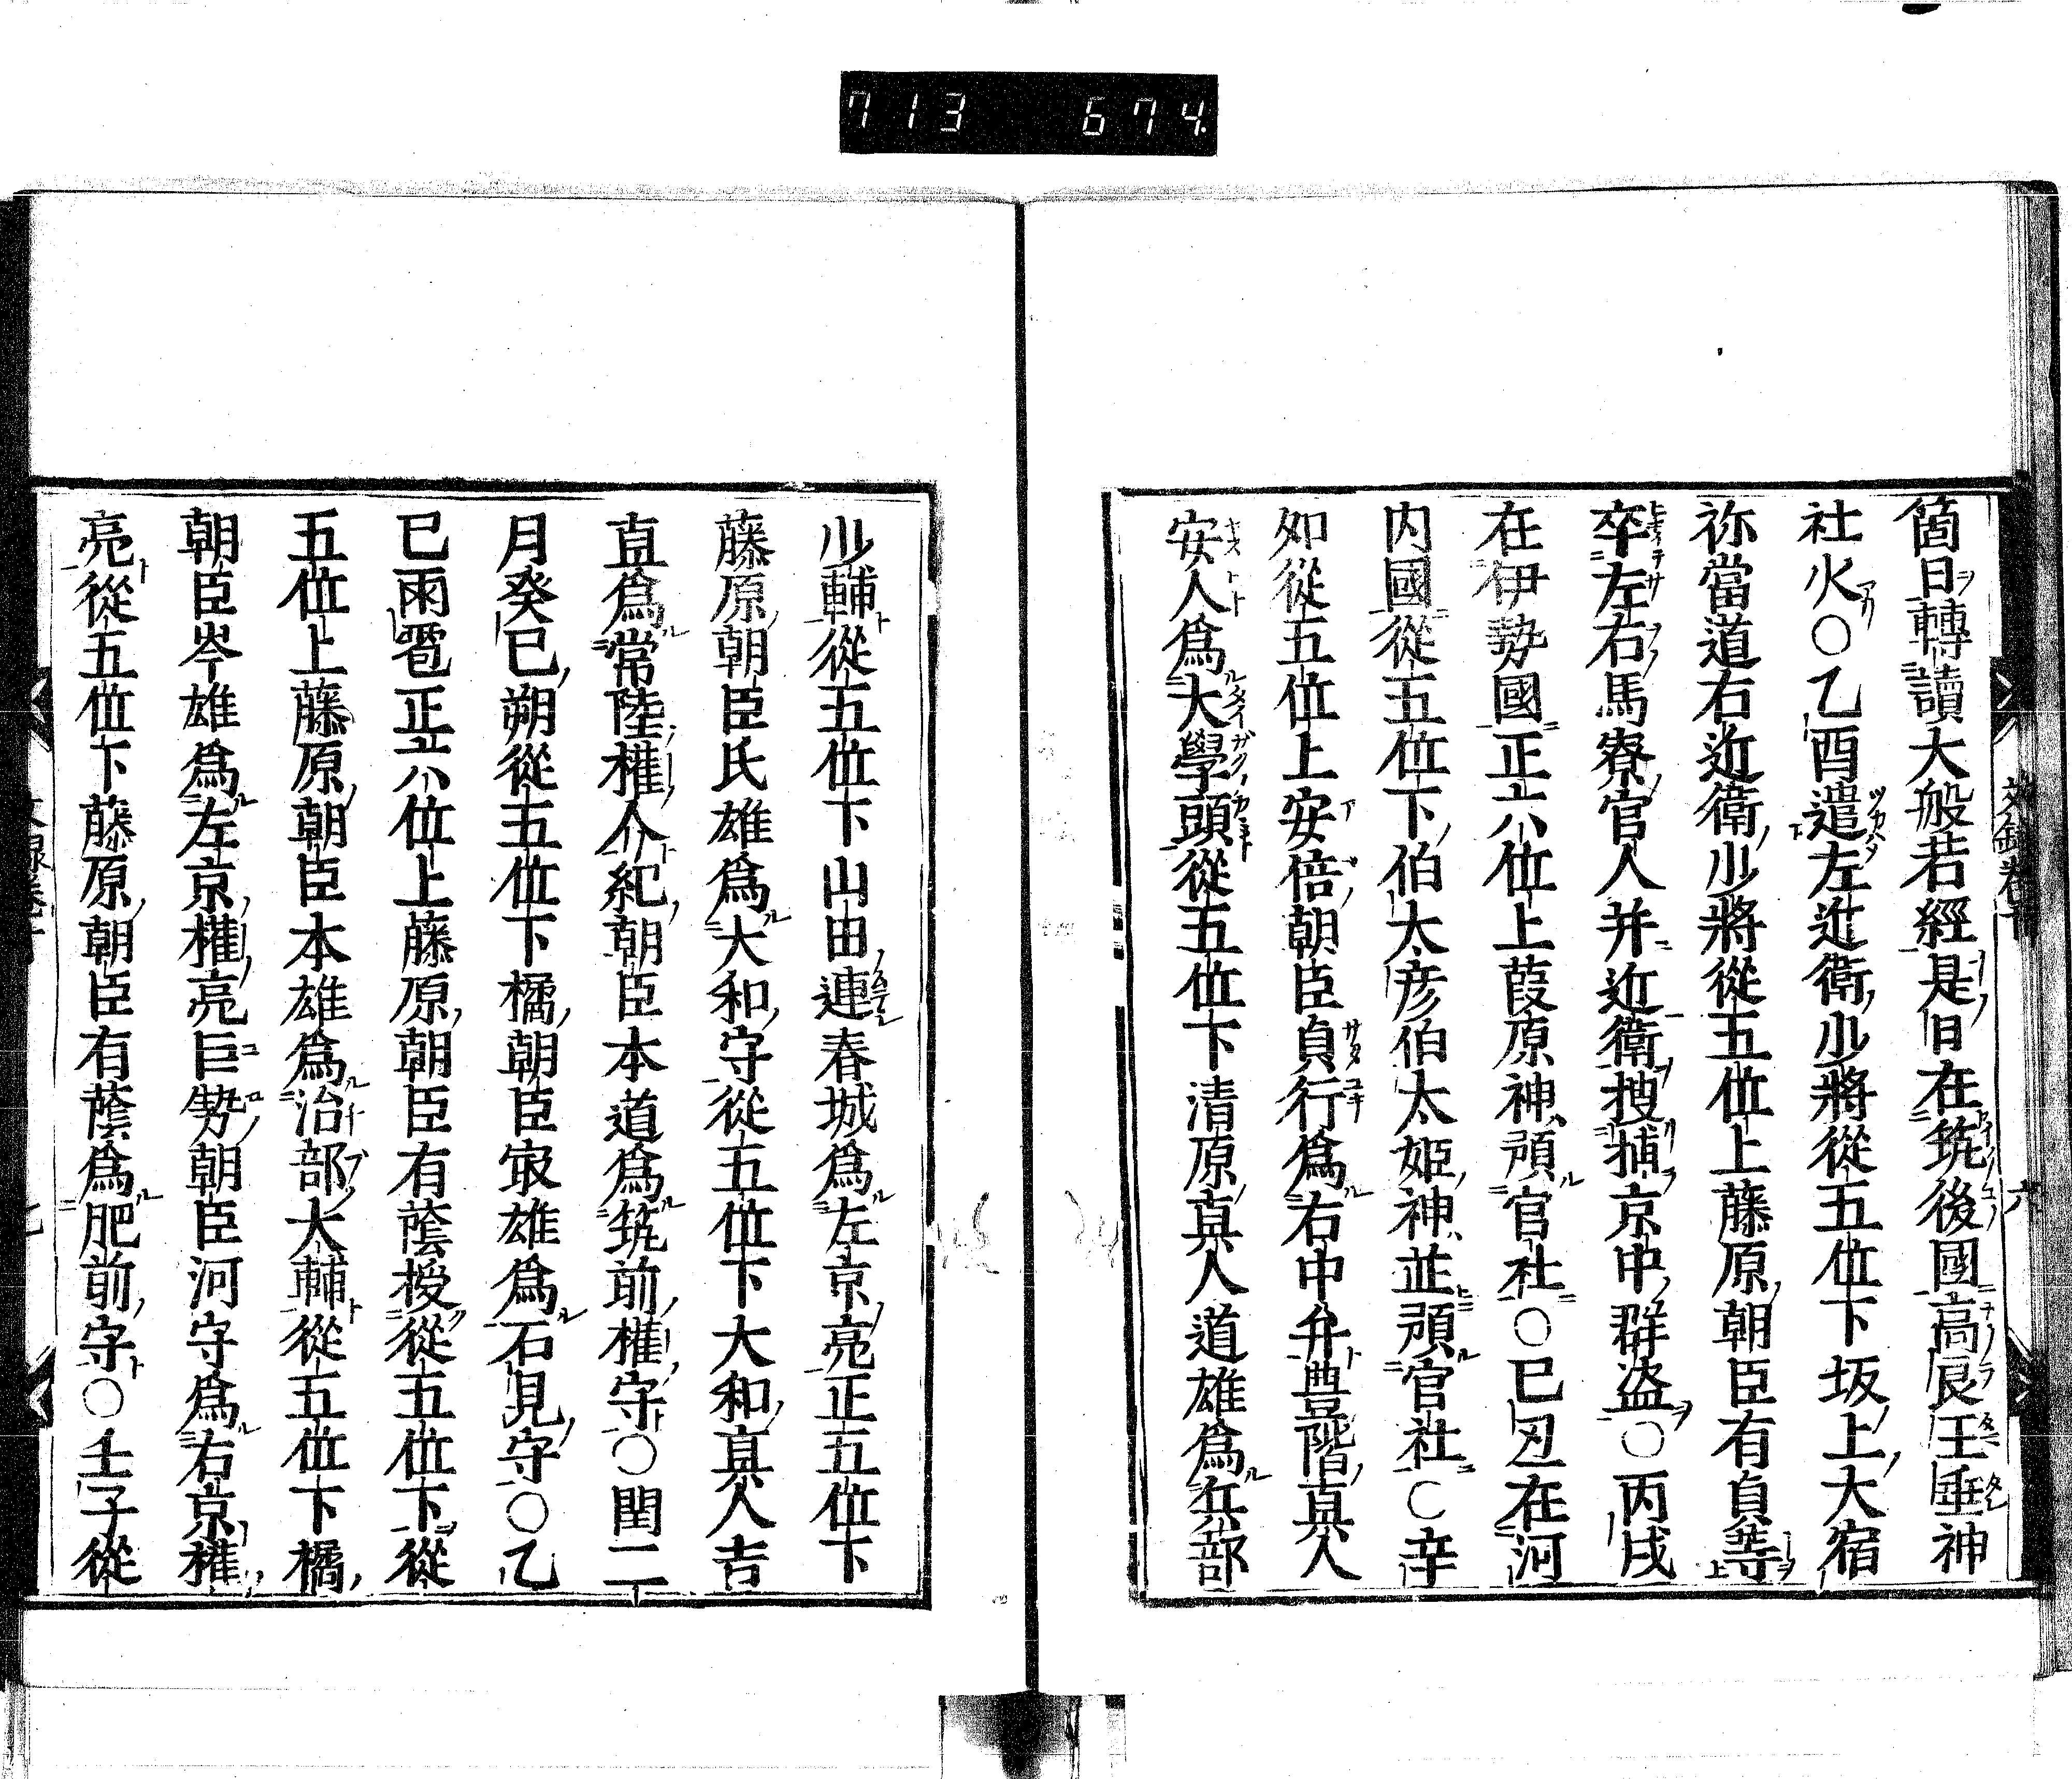 713 674
箇日轉讀大般若經是日在筑後國高良玉垂神
社火○乙酉遣左近衛少將從五位下坂上大宿
祢當道右近衛少將從五位上藤原朝臣有貞等
卒左右馬寮官人并近衛搜捕京中群盜○丙戌
在伊勢國正六位上葭原神預官社○已丑在河
内國從五位下伯太彦伯太姫神並預官社○辛
如從五位上安倍朝臣貞行爲右中弁豊階真人
安人爲大學頭從五位下清原真人道雄爲兵部
少輔從五位下山田連春城爲左京亮正五位下
藤原朝臣氏雄爲大和守從五位下大和真人吉
直爲常陸權介紀朝臣本道爲筑前權守○閏二
月癸巳朔從五位下橘朝臣㝡雄爲石見守○乙
巳雨雹正六位上藤原朝臣有蔭授從五位下從
五位上藤原朝臣本雄爲治部大輔從五位下橘
朝臣岑雄爲左京權亮巨勢朝臣河守爲右京權
亮從五位下藤原朝臣有蔭爲肥前守○壬子從